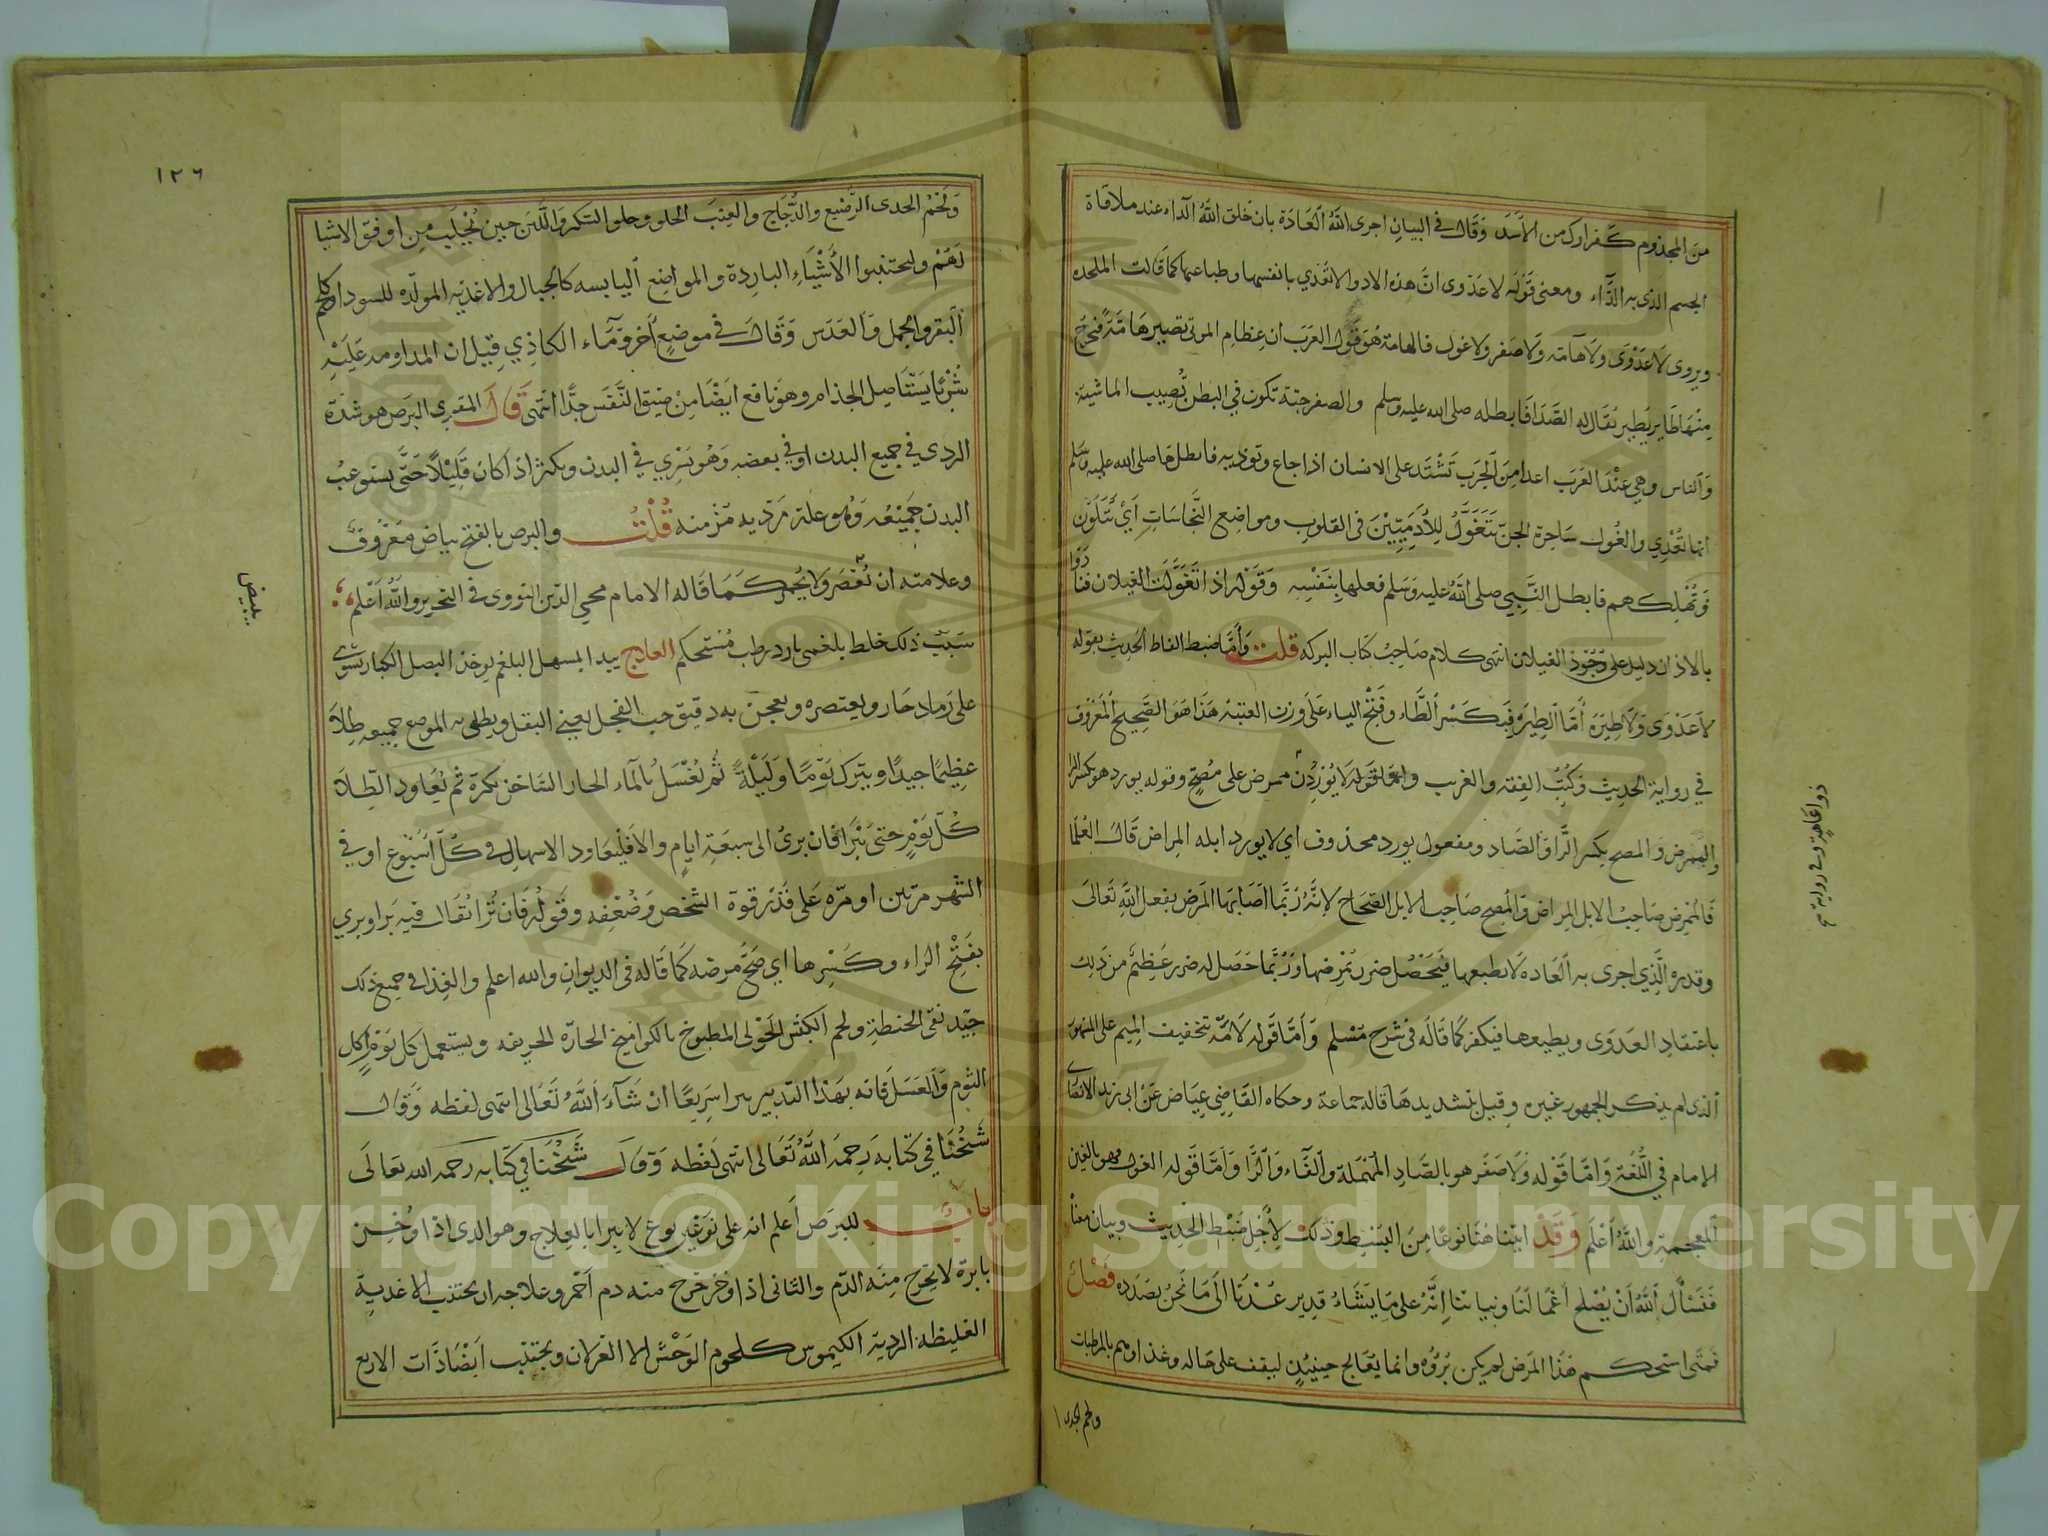 من المجذوم كفرارك من الأسد وقال في البيان اجرى الله العادة بان خلق الله الداء عند ملاقاة
الجسم الذي به الداء ومعنى قوله لا عدوى ان هذه الادوا لا تعدي بانفسها وطباعها كما قالت الملحده
ويروى لا عدوى ولا هامه ولا صفر ولا غول فالهامة هو قول العرب ان عظام الموتى تصير هامة فتخرج
منها طاير يطير يقال له الصدا فابطله صلى الله عليه وسلم والصفر حية تكون في البطن تصيب الماشية
والناس وهي عند العرب اعدا من الجرب تشتد على الانسان اذا جاع وتوذيه فابطل صلى الله عليه وسلم
انها تعدي والغول ساحرة الجن تتغول للآدميين في القلوب ومواضع النجاسات أي تتلون
وتهلكهم فابطل النبي صلى الله عليه وسلم فعلها بنفسه وقوله اذا تغولت الغيلان فنادوا
بالاذان دليل على وجود الغيلان انتهى كلام صاحب كتاب البركه قلت وأما ضبط الفاظ الحديث بقوله
لا عدوى ولا طيره أما الطيره فبكسر الطاء وفتح الياء على وزن العنبة هذا هو الصحيح المعروف
في رواية الحديث وكتب الفقه والغريب واما قوله لا يوردن ممرض على مصح وقوله يورد هو بكسر الرا
والممرض والمصح بكسر الرا والصاد ومفعول يورد محذوف اي لا يورد ابله المراض قال العلما
فالممرض صاحب الابل المراض والمصح صاحب الابل الصحاح لانه ربما اصابها المرض بفعل الله تعالى
وقدره الذي اجرى به العاده لا بطبعها فيحصل ضرر بمرضها وربما حصل له ضرر عظيم من ذلك
باعتقاد العدوى وبطبعها فيكفر كما قاله في شرح مسلم وأما قوله لا هامه تخفيف الميم على المشهور
الذي لم يذكر الجمهور غيره وقيل بتشديدها قاله جماعة وحكاه القاضي عياض عن ابي زيد الانصاري
الامام في اللغة واما قوله ولا صفر هو بالصاد المهملة والفاء والرا وأما قوله الغول فهو بالغين
المعجمة والله أعلم وقد ابينا هنا نوعا من البسط وذلك لأجل ضبط الحديث وبيان معناه
فنسأل الله أن يصلح أعمالنا ونياتنا إنه على ما يشاء قدير عدنا الى ما نحن بصدده فصل
فمتى استحكم هذا المرض لم يكن برؤه وانما يعالج حينئذ ليقف على حاله وغذاوهم بالمرطبات
ولحم الجدى
ذو العاهة وفي رواية
١٢٦
ولحم الجدى الرضيع والدجاج والعنب الحلو وحلو السكر واللبن حين يحلب من اوفق الاشيا
لهم وليجتنبوا الأشياء الباردة والمواضع اليابسه كالجبال والاغذيه المولده للسودا كلحم
البقر والجمل والعدس وقال في موضع آخر وماء الكاذي قيل ان المداومه عليه
شربا يستاصل الجذام وهو نافع ايضا من ضيق النفس جدا انتهى قال المقري البرص هو شدة
الردي في جميع البدن او في بعضه وهو يسري في البدن ويكثر اذا كان قليلا حتى يستوعب
البدن جميعه وهو علة رديه مزمنه قلت والبرص بالفتح بياض معروف
وعلامته ان تعصر ولا يحمر كما قاله الامام محيي الدين النووي في التحرير والله أعلم
سبب ذلك خلط بلغمي بارد رطب مستحكم العلاج يبدا بمسهل البلغم ثم يوخذ البصل الكبار يشوى
على رماد حار ويعتصره ويعجن به دقيق حب الفجل يعني البقل ويطلى به الموضع جميعه طلا
عظيما جيدا ويترك يوما وليلة ثم يغسل بالماء الحار الساخن بكرة ثم يعاود الطلا
كل يوم حتى يبرا فان برئ الى سبعة ايام والا فليعاود الاسهال في كل أسبوع او في
الشهر مرتين او مره على قدر قوة الشخص وضعفه وقوله فان برا يقال فيه برا وبري
بفتح الراء وكسرها اي صح مرضه كما قاله في الديوان والله اعلم والغذا في جميع ذلك
جيد نقي الحنطة ولحم الكبش الحولي المطبوخ بالكوامخ الحارة الحريفه ويستعمل كل يوم اكل
الثوم والعسل فانه بهذا التدبير يبرا سريعا ان شاء الله تعالى انتهى لفظه وقال
شيخنا في كتابه رحمه الله تعالى انتهى لفظه وقال شيخنا في كتابه رحمه الله تعالى
باب للبرص أعلم انه على نوعين نوع لا يبرا بالعلاج وهو الذي اذا وخز
بابرة لا يخرج منه الدم والثاني اذا وخز خرج منه دم أحمر وعلاجه ان يجتنب الاغذية
الغليظه الردية الكيموس كلحوم الوحش الا الغزلان ويجتنب ايضا ذات الاربع
يبيض
Copyright © King Saud University